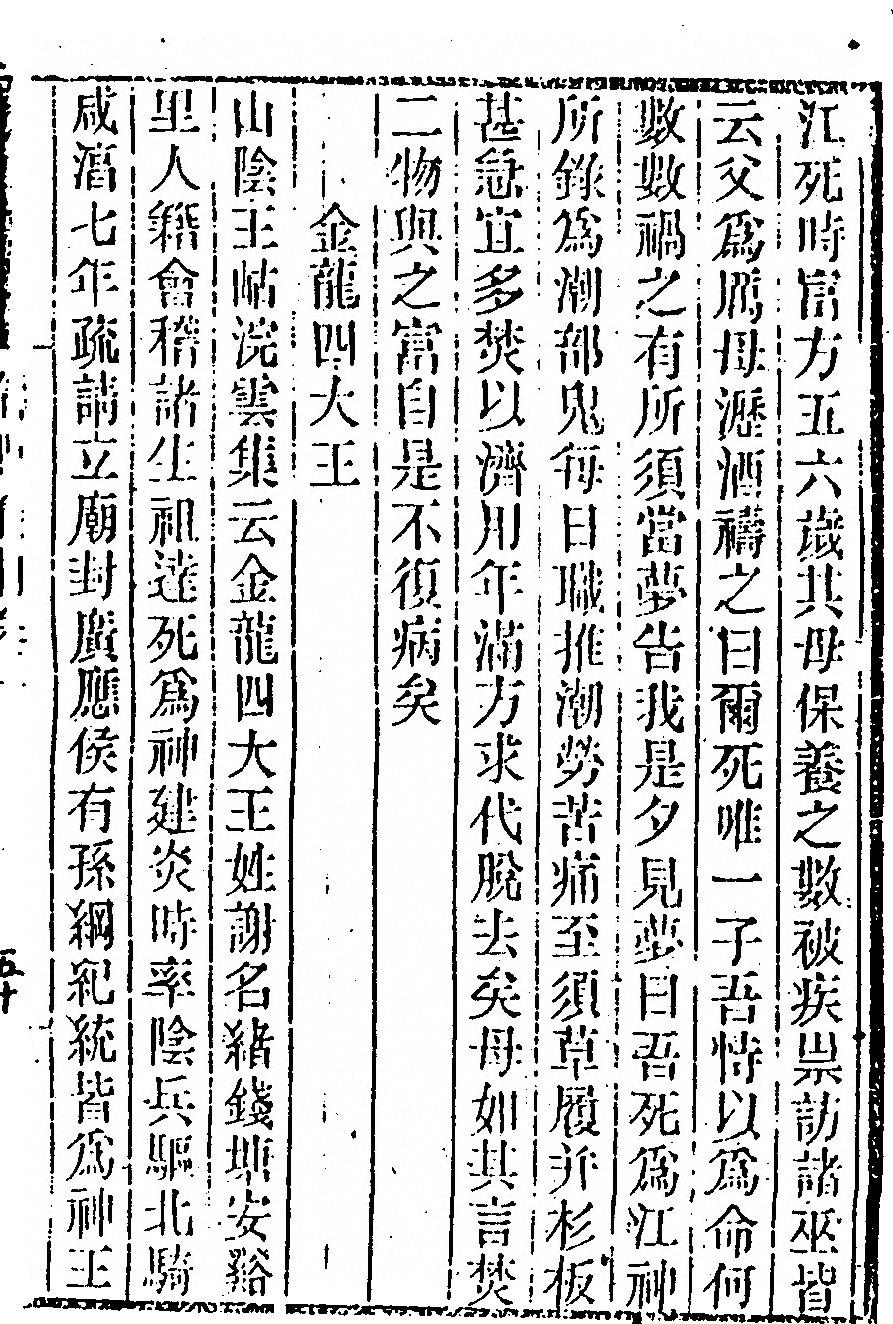 江死時富方五六歲其母保養之數被疾祟訪諸巫皆
云父爲厲母瀝酒禱之曰爾死唯一子吾恃以爲命何
數數禍之有所須當夢告我是夕見夢曰吾死爲江神
所錄爲潮部鬼每日職推潮勞苦痛至須草履并杉板
甚急宜多焚以濟用年滿方求代脫去矣母如其言焚
二物與之富自是不復病矣
金龍四大王
山陰王岵浣雲集云金龍四大王姓謝名緒錢塘安谿
里人籍會稽諸生祖達死爲神建炎時率陰兵驅北騎
咸淳七年疏請立廟封廣應侯有孫綱紀統皆爲神王
五十